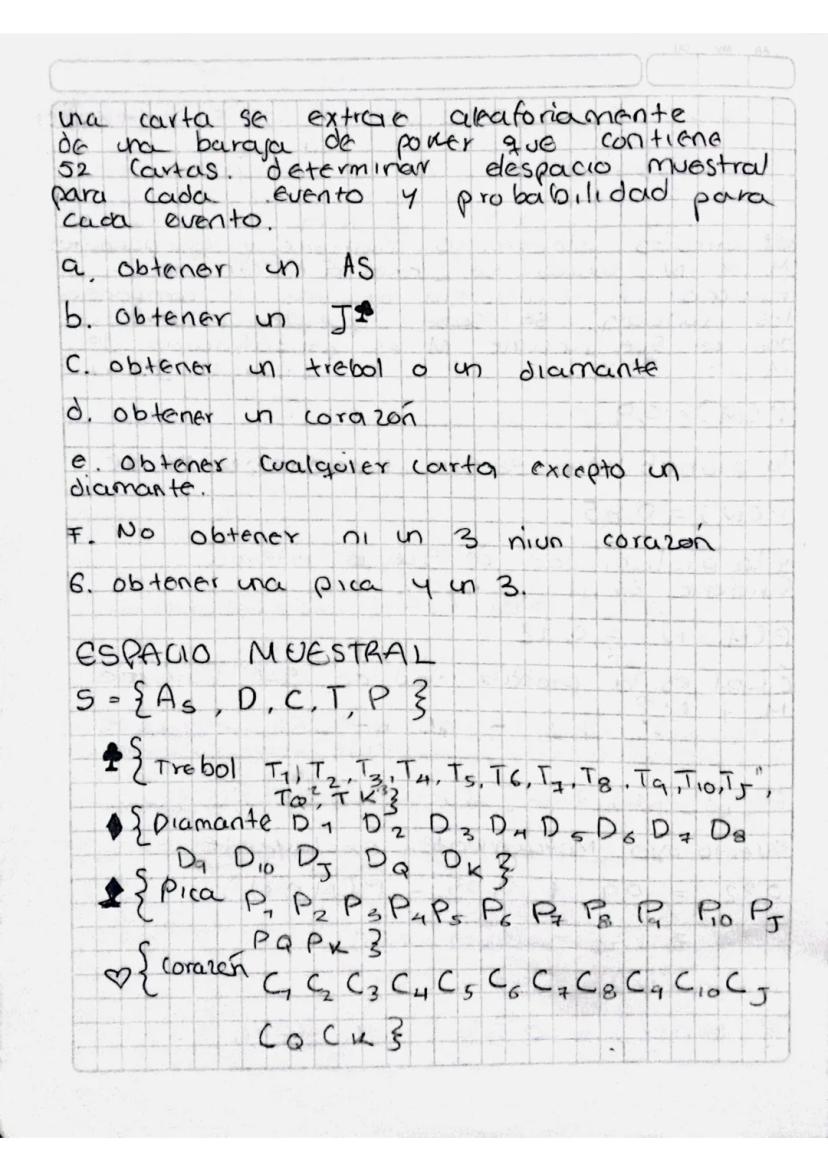 una carta se extrae aleatoriamente
de una baraja de poker que contiene
52 Cartas. determinar despacio muestral
para cada evento y probabilidad para
cada evento.
a. obtener un AS
b. obtener un J♣
C. obtener un trebol o un diamante
d. obtener un corazón
e. obtener cualquier carta excepto un
diamante.
F. No obtener ni un 3 niun corazón
G. obtener una pica y un 3.
ESPACIO MUESTRAL
S = {As, D, C, T, P }
♣ { Trebol T1, T2, T3, T4, T5, T6, T7, T8, T9, T10, TJ¹¹,
TQ¹², TK¹³}
♦ { Diamante D1 D2 D3 D4 D5 D6 D7 D8
D9 D10 DJ DQ DK }
♠ { Pica P1 P2 P3 P4 P5 P6 P7 P8 P9 P10 PJ
PQ PK }
♡ { corazón C1 C2 C3 C4 C5 C6 C7 C8 C9 C10 CJ
CQ CK }